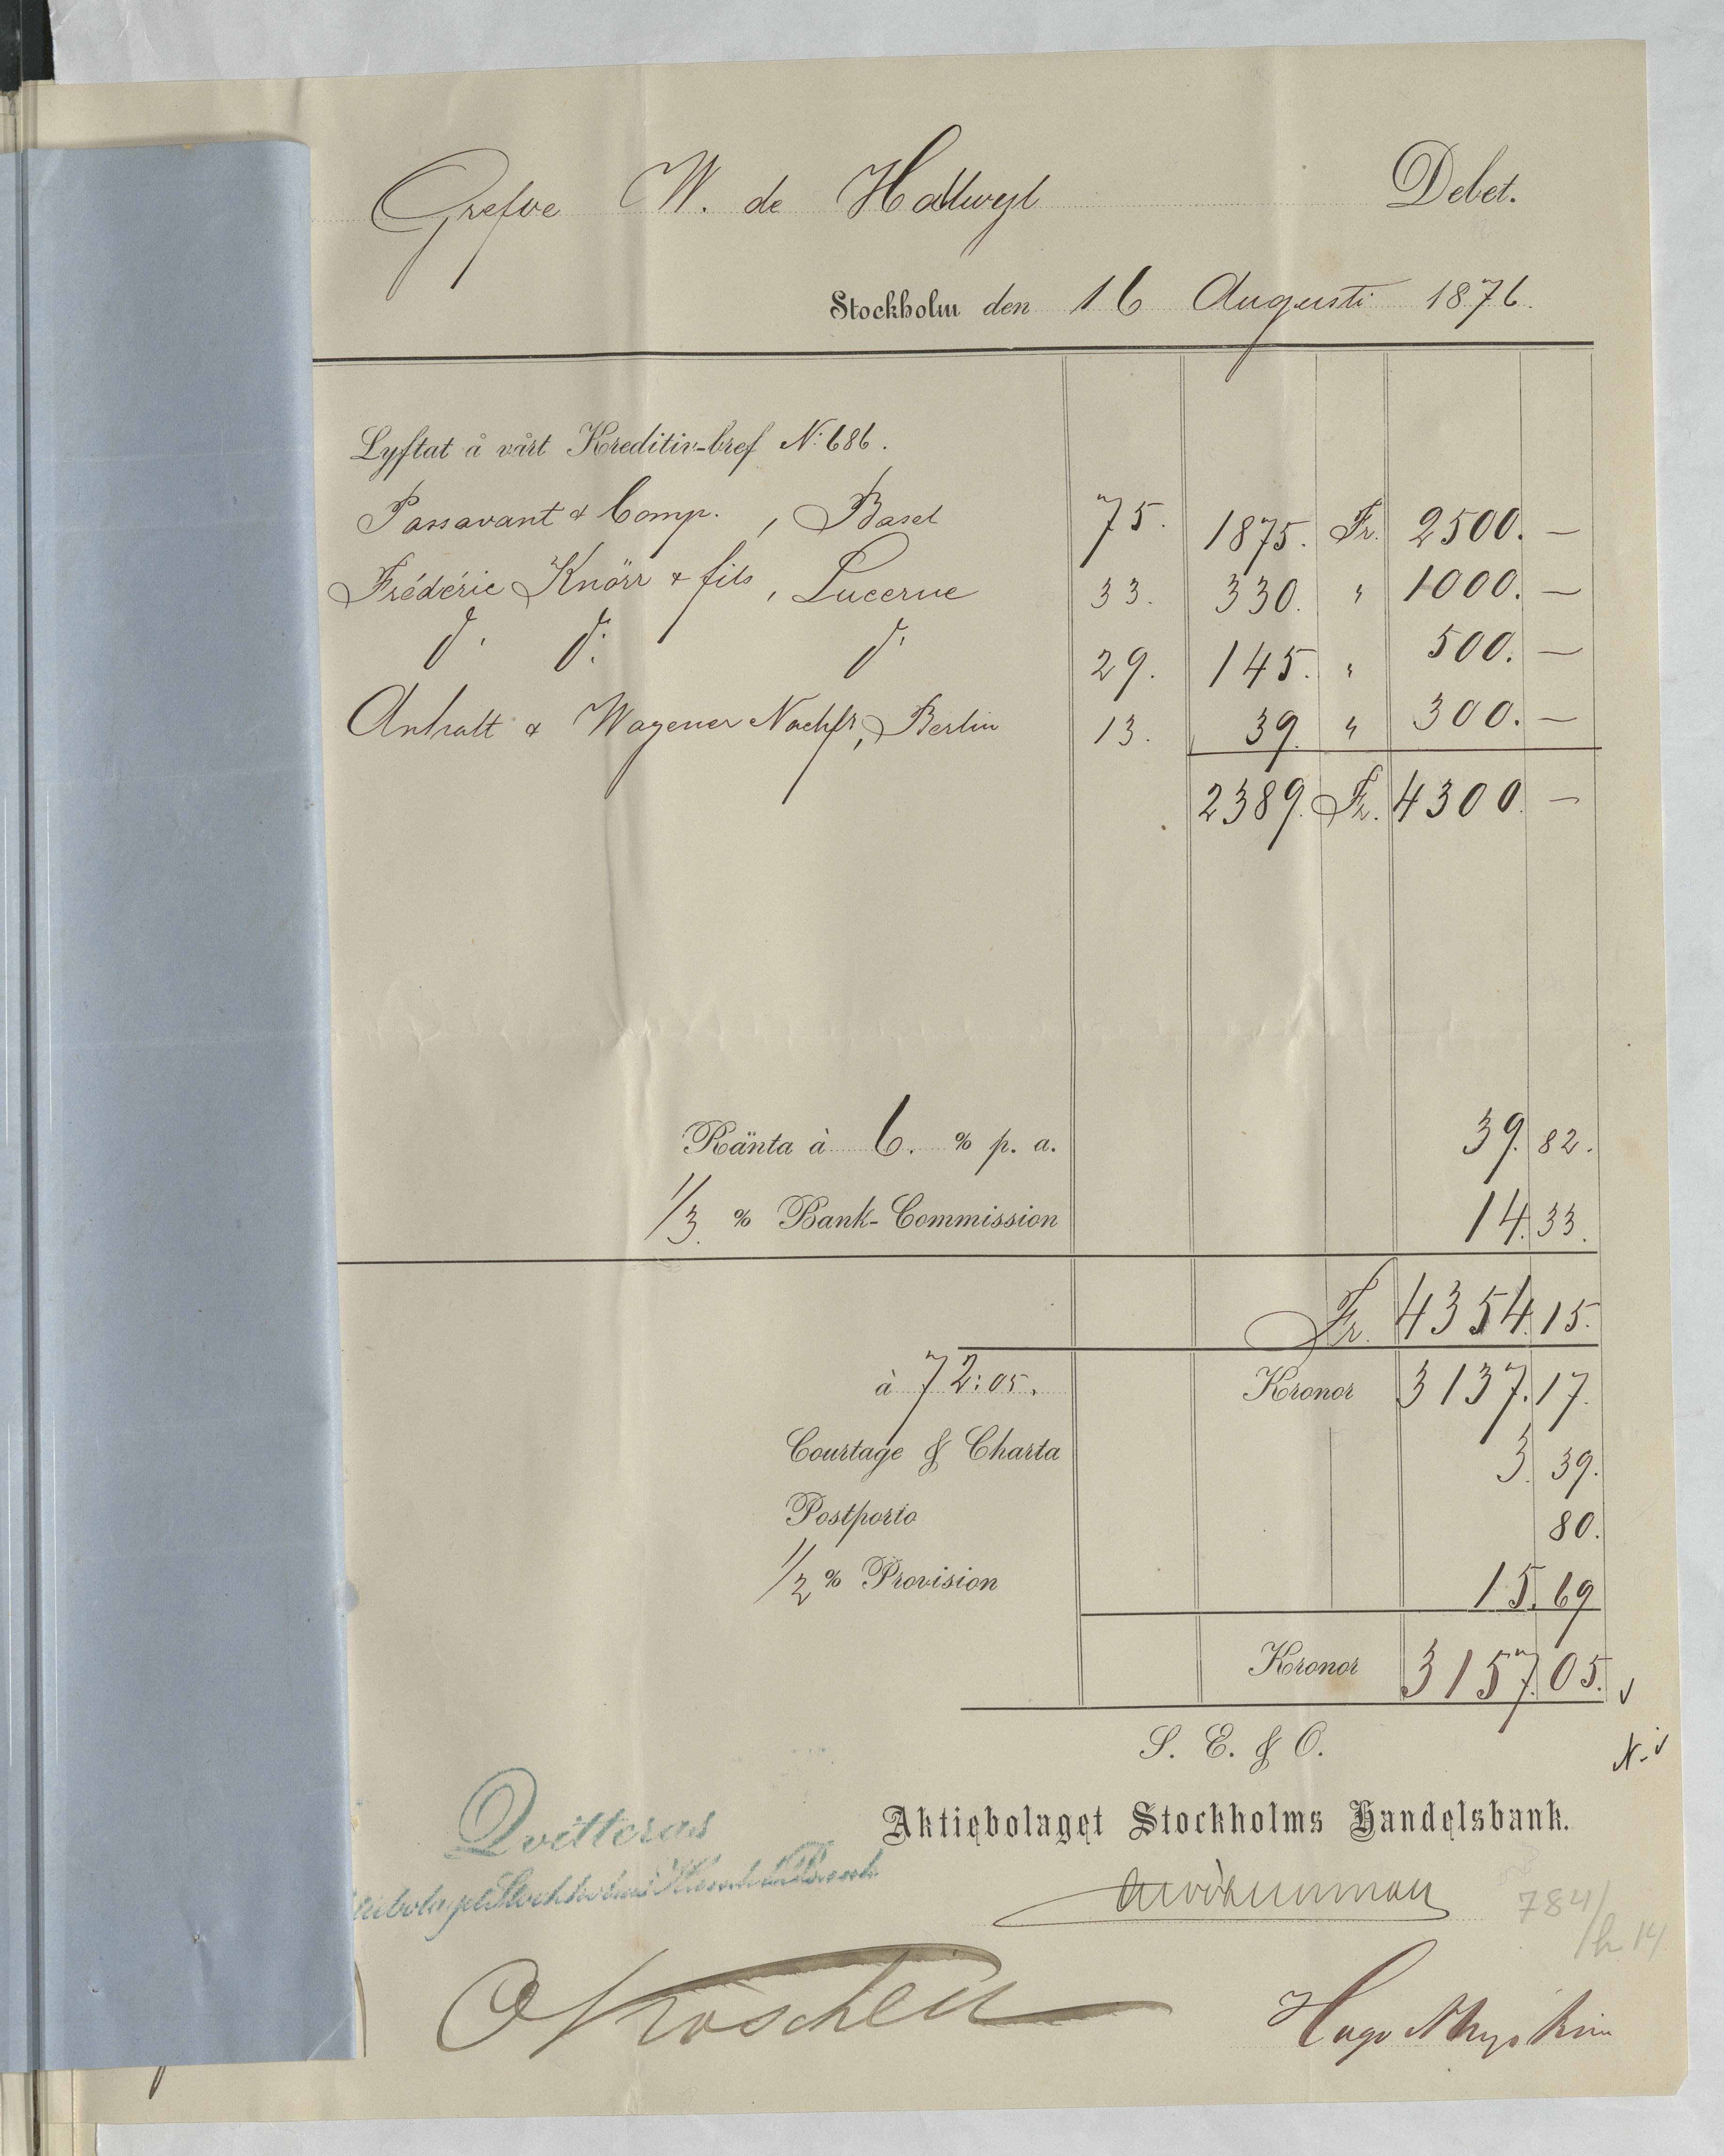 Grefve W. de Hallwyl Debet.
Stockholm den 16 Augusti 1876.
Lyftat å vårt Kreditiv-bref No: 686.
Passavant & Comp. , Basel 75. 1875. Fr. 2500. —
Frédéric Knörr & fils , Lucerne 33. 330. " 1000. —
d:o d:o d:o 29. 145. " 500. —
Anhalt & Wagener Nachfr, Berlin 13. 39. " 300. —
2389. Fr. 4300. —
Ränta à 6. % p. a. 39. 82.
1/3. % Bank-Commission 14. 33.
Fr. 4354. 15.
à 72:05. Kronor 3137. 17.
Courtage & Charta 3. 39.
Postporto 80.
1/2 % Provision 15. 69
Kronor 3157. 05.
S. E. & O.
Aktiebolaget Stockholms Handelsbank.
Qvitteras
784/
h. 14
Hugo